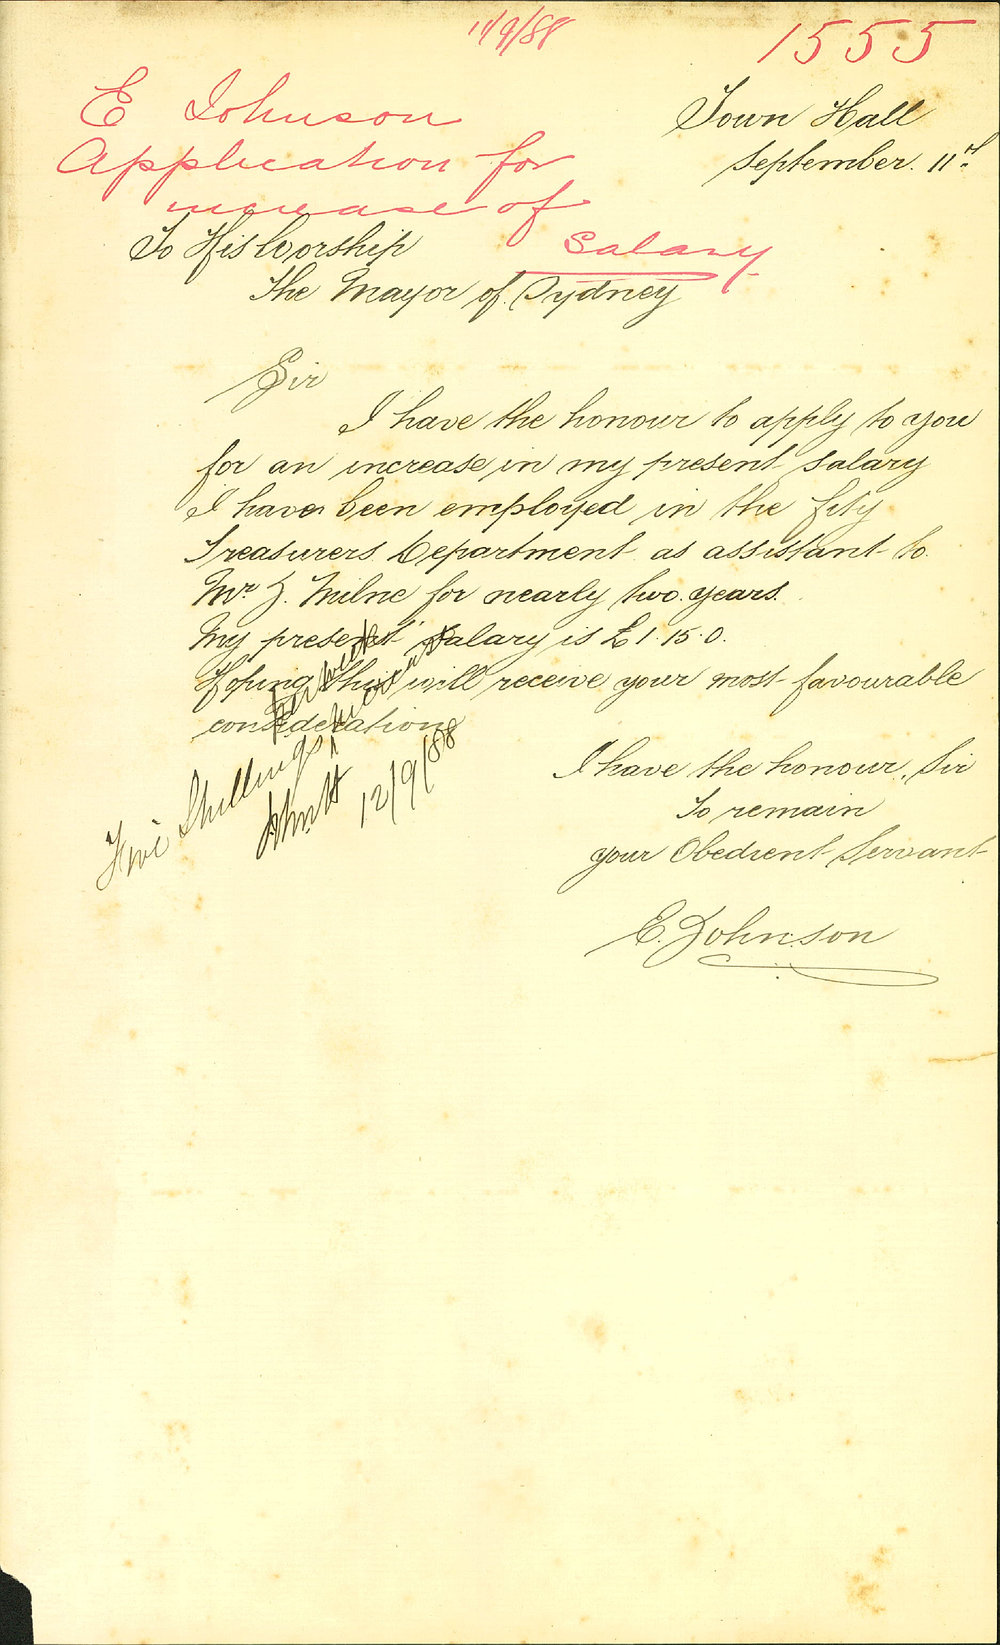 11/9/88
1555
E Johnson
Application for
increase of
Salary
Town Hall
September. 11th
To His Worship
The Mayor of Sydney
Sir
I have the honour to apply to you
for an increase in my present salary
I have been employed in the City
Treasurers Department as assistant to
Mr. J. Milne for nearly two years.
My present salary is £1.15.0.
Hoping this will receive your most favourable
consideration
Five Shillings
per week
increase
12/9/88
I have the honour, Sir
To remain
your Obedient Servant
E. Johnson